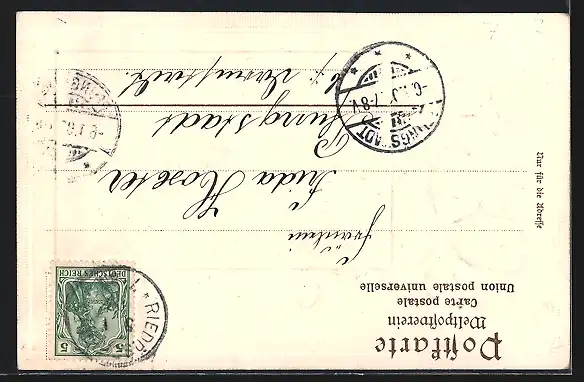 Postkarte
Weltpostverein
Carte postale
Union postale universelle
Nur für die Adresse
5 5
DEUTSCHES REICH
RIEDO
Fräulein
Frida
Pfungstadt
b/ Darmstadt
NGSTADT
7-8V